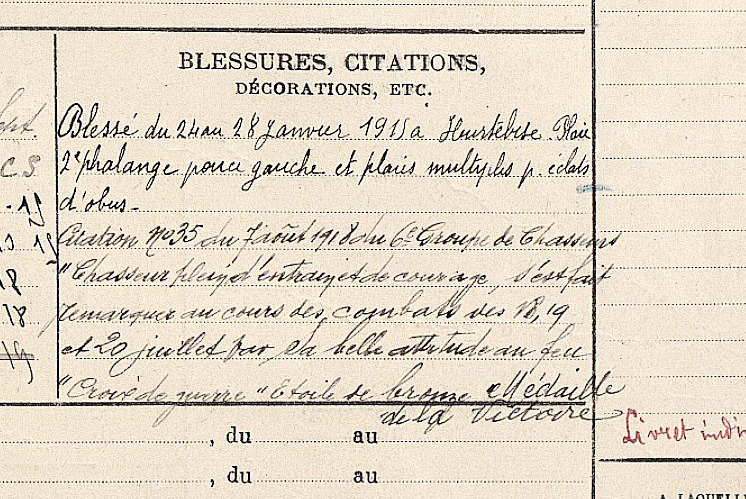 BLESSURES, CITATIONS,
DÉCORATIONS, ETC.
Blessé du 24 au 28 Janvier 1915 à Hurtebise. Plaie
2e phalange pouce gauche et plaies multiples p. éclats
d'obus -
Citation No 35 du 7 août 1918 du 6e Groupe de Chasseurs
"Chasseur plein d'entrain et de courage, s'est fait
remarquer au cours des combats des 18, 19
et 20 juillet par sa belle attitude au feu
"Croix de guerre" Etoile de bronze Médaille
de la Victoire
, du au
, du au
Livret indi
A LAQUELLE
C S
18
18
19